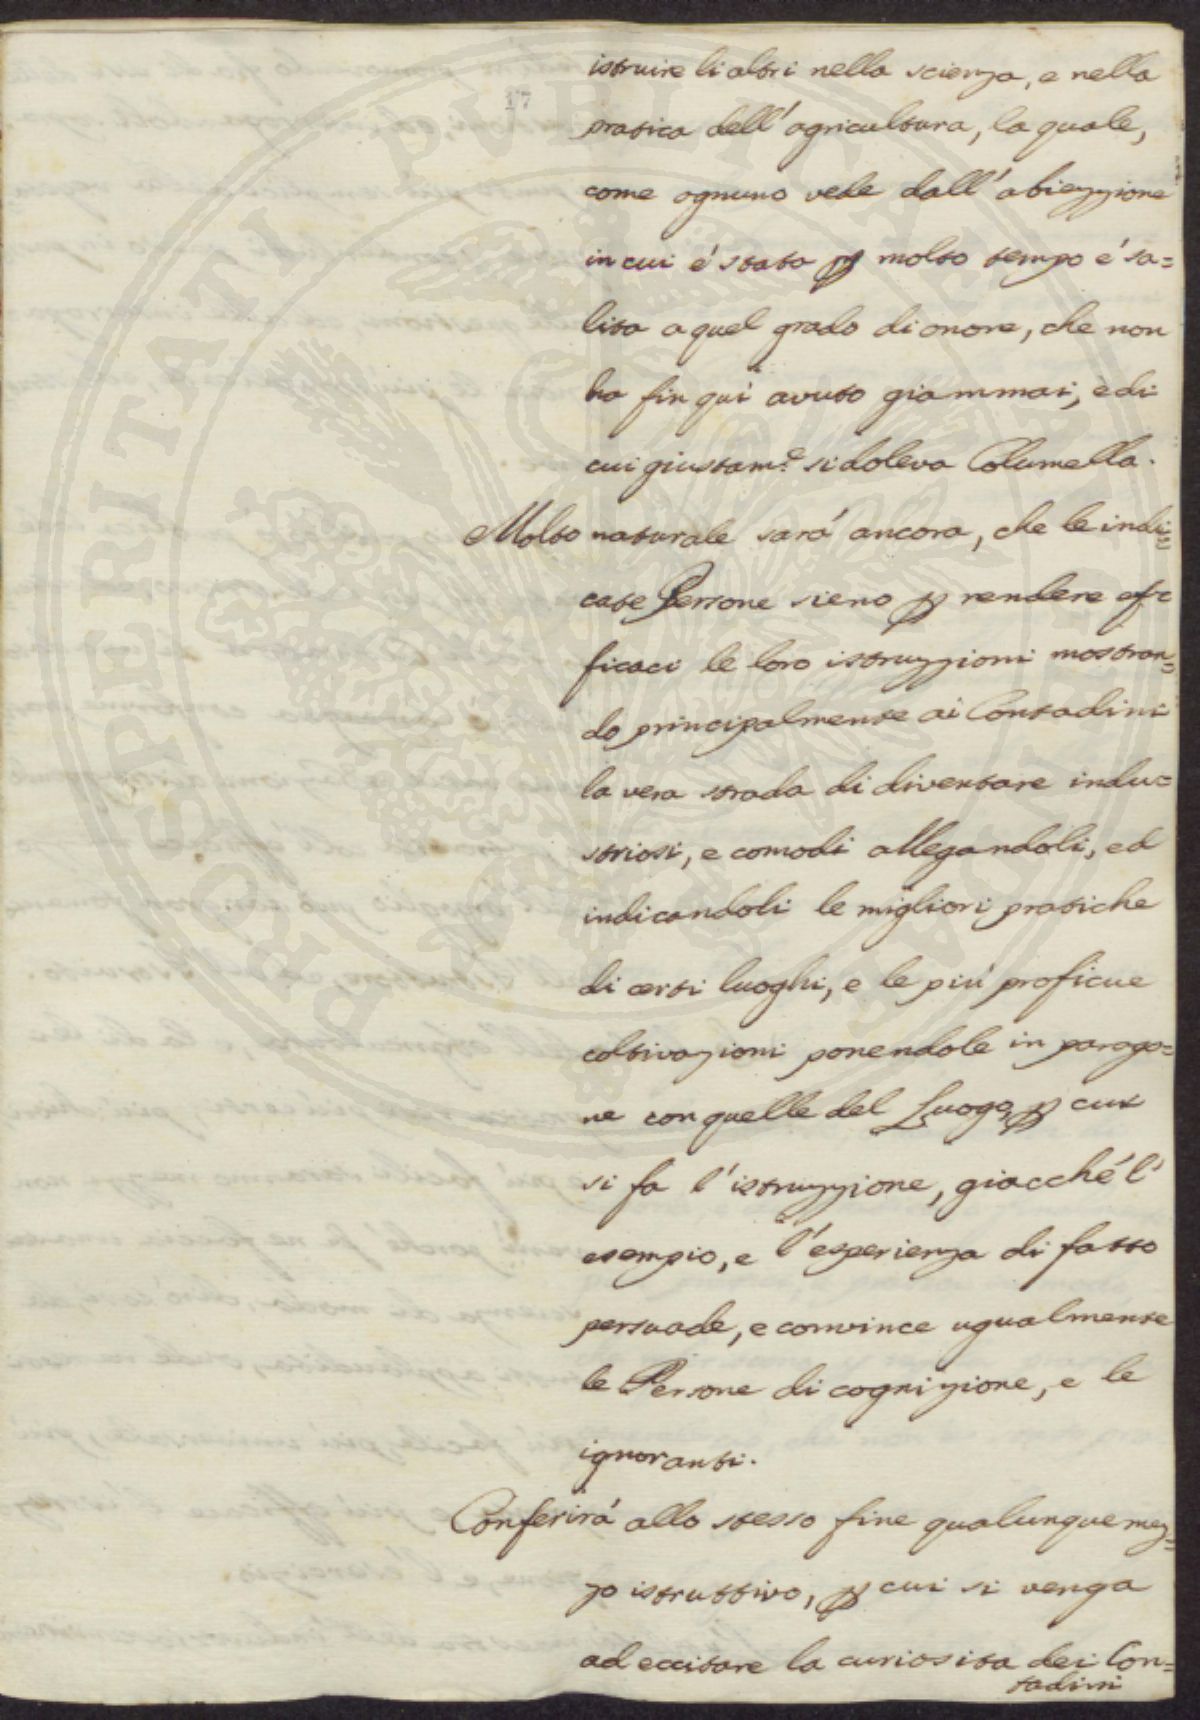 17
istruire li altri nella scienza, e nella
pratica dell' agricultura, la quale,
come ognuno vede dall' abiezzione
in cui é stata p molto tempo é sa=
lita a quel grado di onore, che non
ha fin qui avuto giammai, e di
cui giustam.e si doleva Columella.
Molto naturale sará ancora, che le indi=
cate Persone sieno p rendere effi
ficaci le loro istruzzioni mostran=
do principalmente ai Contadini
la vera strada di diventare indu=
striosi, e comodi allegandoli, ed
indicandoli le migliori pratiche
di certi luoghi, e le piú proficue
coltivazioni ponendole in parago=
ne con quelle del Luogo, p cui
si fa l' istruzzione, giacché l'
esempio, e l' esperienza di fatto
persuade, e convince ugualmente
le Persone di cognizione, e le
ignoranti.
Conferirá allo stesso fine qualunque mez=
zo istruttivo, p cui si venga
ad eccitare la curiosita dei Con=
tadini
PROSPERITATI PUBLICAE AUGENDAE